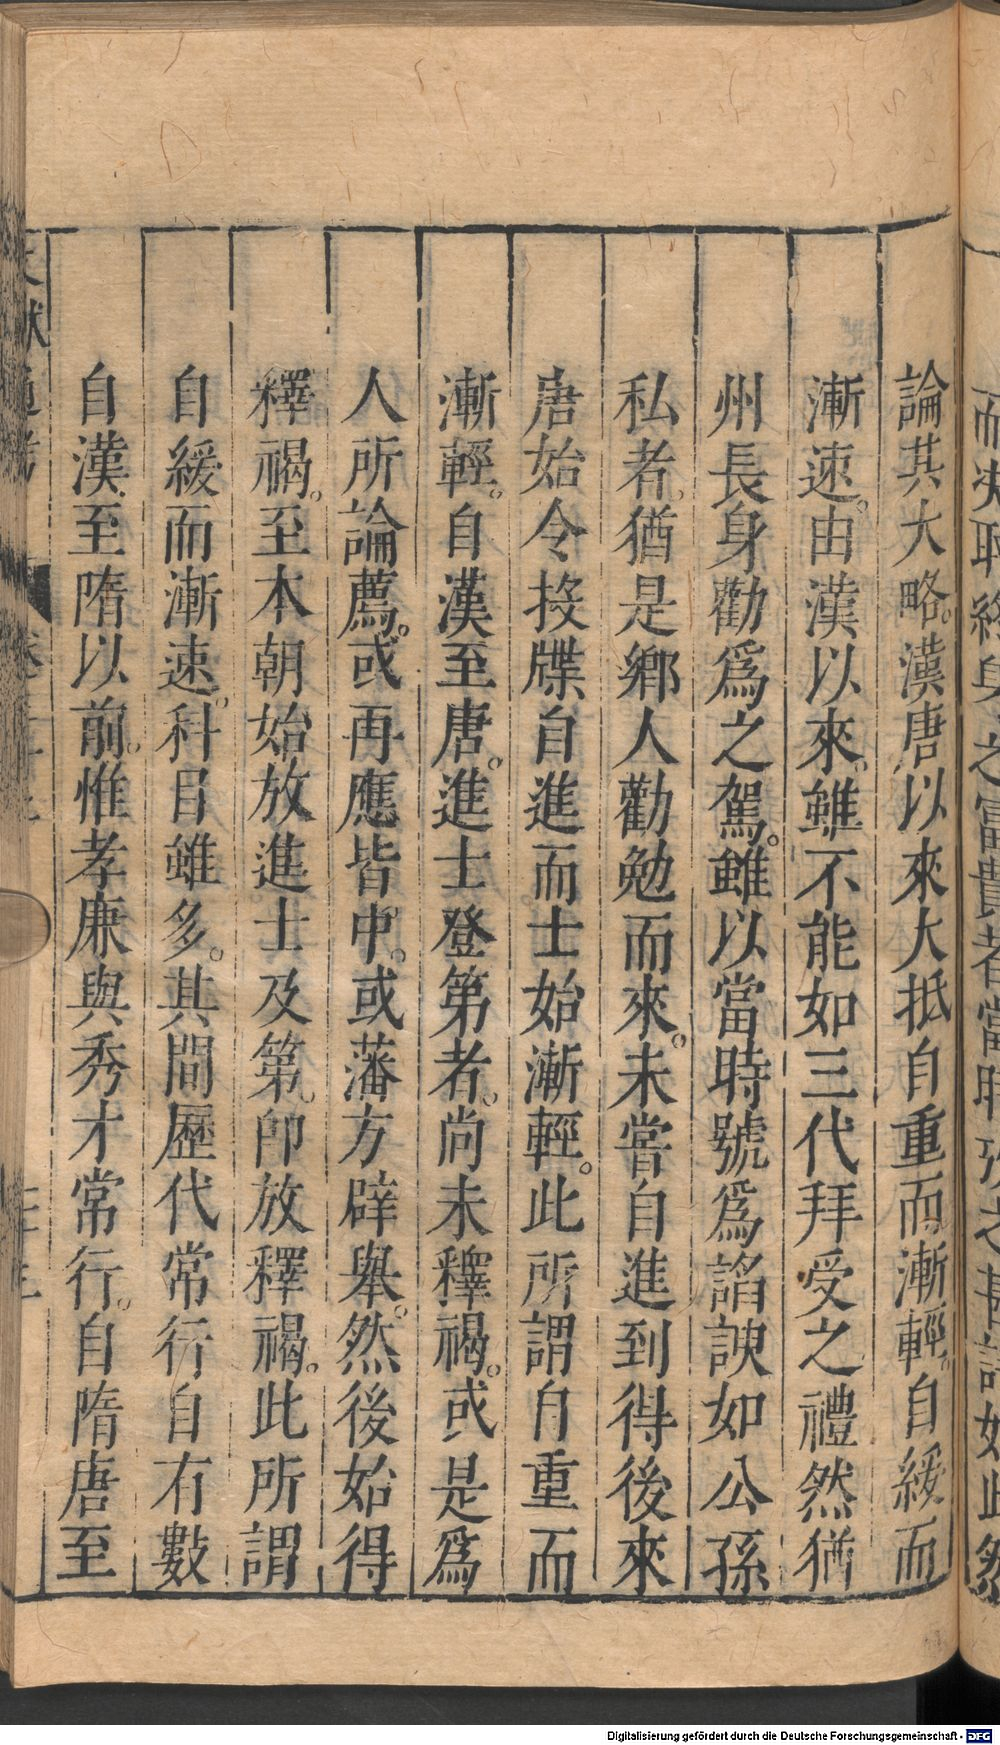 而夾取終身之富貴者當時
論其大略。漢唐以來大抵自重而漸輕。自緩而
漸速。由漢以來。雖不能如三代拜受之禮然猶
州長身勸爲之駕。雖以當時號爲諂諛如公孫
私者。猶是鄉人勸勉而來。未嘗自進到得後來
唐始令投牒自進而士始漸輕。此所謂自重而
漸輕。自漢至唐。進士登第者。尚未釋褐。或是爲
人所論薦。或再應皆中。或藩方辟舉。然後始得
釋褐。至本朝始放進士及第。卽放釋褐。此所謂
自緩而漸速。科目雖多。其間歷代常行自有數
自漢至隋以前。惟孝廉與秀才常行。自隋唐至
文獻通考
Digitalisierung gefördert durch die Deutsche Forschungsgemeinschaft - DFG